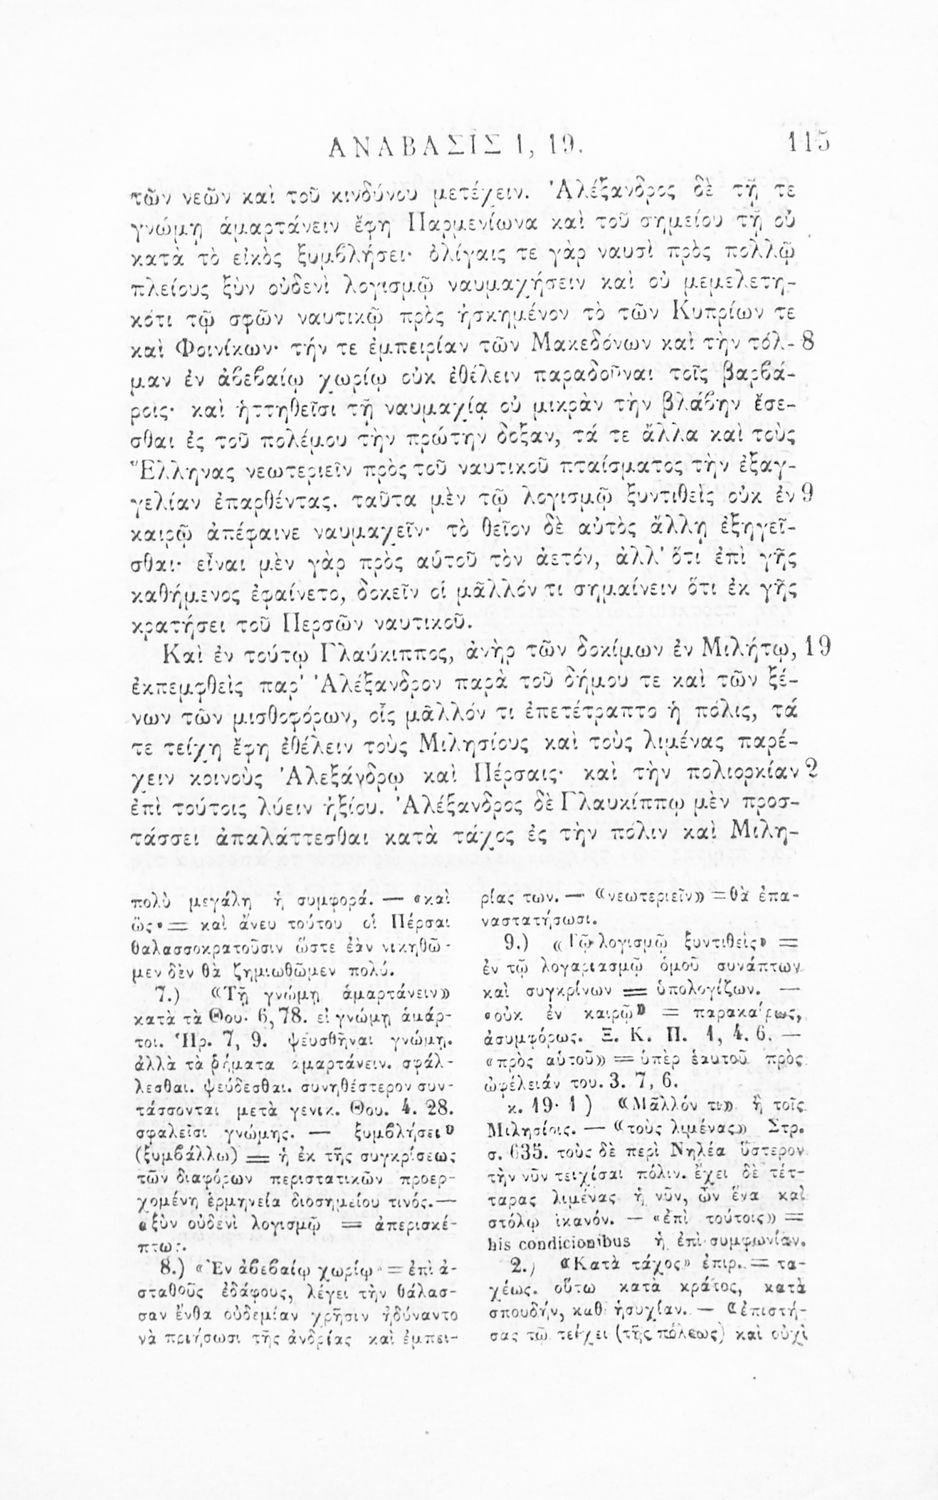 ΑΝΑΒΑΣΙΣ 1, 19. 115
τῶν νεῶν καὶ τοῦ κινδύνου μετέχειν. Ἀλέξανδρος δὲ τῇ τε
γνώμῃ ἁμαρτάνειν ἔφη Παρμενίωνα καὶ τοῦ σημείου τῇ οὐ
κατὰ τὸ εἰκὸς ξυμβλήσει· ὀλίγαις τε γὰρ ναυσὶ πρὸς πολλῷ
πλείους ξὺν οὐδενὶ λογισμῷ ναυμαχήσειν καὶ οὐ μεμελετη-
κότι τῷ σφῶν ναυτικῷ πρὸς ἠσκημένον τὸ τῶν Κυπρίων τε
καὶ Φοινίκων· τήν τε ἐμπειρίαν τῶν Μακεδόνων καὶ τὴν τόλ- 8
μαν ἐν ἀβεβαίῳ χωρίῳ οὐκ ἐθέλειν παραδοῦναι τοῖς βαρβά-
ροις· καὶ ἡττηθεῖσι τῇ ναυμαχίᾳ οὐ μικρὰν τὴν βλάβην ἔσε-
σθαι ἐς τοῦ πολέμου τὴν πρώτην δοξαν, τά τε ἄλλα καὶ τοὺς
Ἕλληνας νεωτεριεῖν πρὸς τοῦ ναυτικοῦ πταίσματος τὴν ἐξαγ-
γελίαν ἐπαρθέντας. ταῦτα μὲν τῷ λογισμῷ ξυντιθεὶς οὐκ ἐν 9
καιρῷ ἀπέφαινε ναυμαχεῖν· τὸ θεῖον δὲ αὐτὸς ἄλλῃ ἐξηγεῖ-
σθαι· εἶναι μὲν γὰρ πρὸς αὑτοῦ τὸν ἀετόν, ἀλλ' ὅτι ἐπὶ γῆς
καθήμενος ἐφαίνετο, δοκεῖν οἱ μᾶλλόν τι σημαίνειν ὅτι ἐκ γῆς
κρατήσει τοῦ Περσῶν ναυτικοῦ.
Καὶ ἐν τούτῳ Γλαύκιππος, ἀνὴρ τῶν δοκίμων ἐν Μιλήτῳ, 19
ἐκπεμφθεὶς παρ' Ἀλέξανδρον παρὰ τοῦ δήμου τε καὶ τῶν ξέ-
νων τῶν μισθοφόρων, οἷς μᾶλλόν τι ἐπετέτραπτο ἡ πόλις, τά
τε τείχη ἔφη ἐθέλειν τοὺς Μιλησίους καὶ τοὺς λιμένας παρέ-
χειν κοινοὺς Ἀλεξάνδρῳ καὶ Πέρσαις· καὶ τὴν πολιορκίαν 2
ἐπὶ τούτοις λύειν ἠξίου. Ἀλέξανδρος δὲ Γλαυκίππῳ μὲν προσ-
τάσσει ἀπαλάττεσθαι κατὰ τάχος ἐς τὴν πόλιν καὶ Μιλη-
πολὺ μεγάλη ἡ συμφορά. — «καὶ
ὣς» = καὶ ἄνευ τούτου οἱ Πέρσαι
θαλασσοκρατοῦσιν ὥστε ἐὰν νικηθῶ-
μεν δὲν θὰ ζημιωθῶμεν πολύ.
7.) «Τῇ γνώμῃ ἁμαρτάνειν»
κατὰ τὰ Θου· 6,78. εἰ γνώμῃ ἁμάρ-
τοι. Ἡρ. 7, 9. ψευσθῆναι γνώμῃ.
ἀλλὰ τὰ ῥήματα ἁμαρτάνειν. σφάλ-
λεσθαι. ψεύδεσθαι. συνηθέστερον συν-
τάσσονται μετὰ γενικ. Θου. 4. 28.
σφαλεῖσι γνώμης. — ξυμβλήσει»
(ξυμβάλλω) = ἡ ἐκ τῆς συγκρίσεως
τῶν διαφόρων περιστατικῶν προερ-
χομένη ἑρμηνεία διοσημείου τινός.—
«ξὺν οὐδενὶ λογισμῷ = ἀπερισκέ-
πτως.
8.) «Ἐν ἀβεβαίῳ χωρίῳ» = ἐπὶ ἀ-
σταθοῦς ἐδάφους, λέγει τὴν θάλασ-
σαν ἔνθα οὐδεμίαν χρῆσιν ἠδύναντο
νὰ ποιήσωσι τῆς ἀνδρίας καὶ ἐμπει-
ρίας των. — «νεωτεριεῖν» =θὰ ἐπα-
ναστατήσωσι.
9.) «Τῷ λογισμῷ ξυντιθεὶς» =
ἐν τῷ λογαριασμῷ ὁμοῦ συνάπτων
καὶ συγκρίνων = ὑπολογίζων. —
«οὐκ ἐν καιρῷ» = παρακαίρως,
ἀσυμφόρως. Ξ. Κ. Π. 1, 4. 6. —
«πρὸς αὑτοῦ» = ὑπὲρ ἑαυτοῦ πρὸς
ὠφέλειάν του. 3. 7, 6.
κ. 19· 1) «Μᾶλλόν τι» ἢ τοῖς
Μιλησίοις. — «τοὺς λιμένας» Στρ.
σ. 635. τοὺς δὲ περὶ Νηλέα ὕστερον
τὴν νῦν τειχίσαι πόλιν. ἔχει δὲ τέτ-
ταρας λιμένας ἡ νῦν, ὧν ἕνα καὶ
στόλῳ ἱκανόν. — «ἐπὶ τούτοις» =
his condicionibus ἡ ἐπὶ συμφωνίαν.
2.) «Κατὰ τάχος» ἐπιρ. = τα-
χέως. οὕτω κατὰ κράτος, κατὰ
σπουδήν, καθ' ἡσυχίαν. — «ἐπιστή-
σας τῷ τείχει (τῆς πόλεως) καὶ οὐχὶ